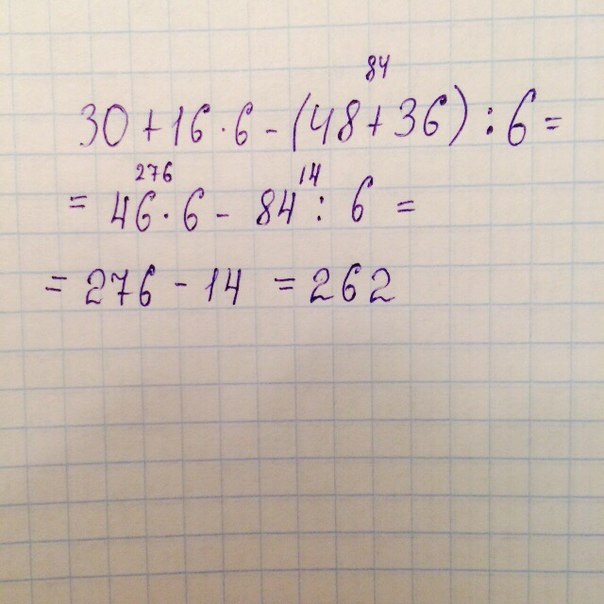 84
30 + 16 · 6 - (48 + 36) : 6 =
276 14
= 46 · 6 - 84 : 6 =
= 276 - 14 = 262